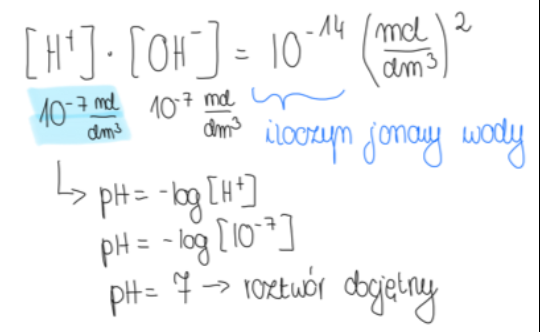 [H⁺] · [OH⁻] = 10⁻¹⁴ (mol/dm³)²
10⁻⁷ mol/dm³ 10⁻⁷ mol/dm³ iloczyn jonowy wody
↳ pH = -log[H⁺]
pH = -log[10⁻⁷]
pH = 7 → roztwór obojętny